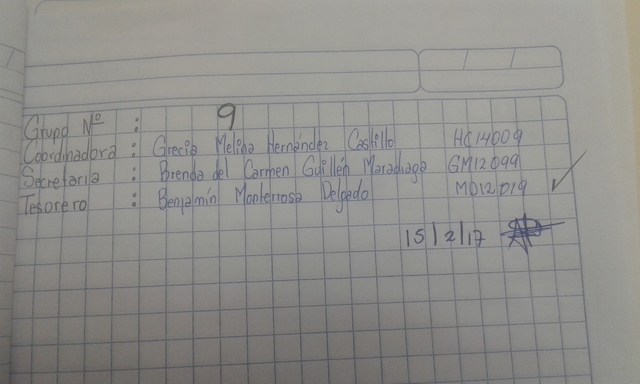 Grupo Nº : 9
Coordinadora : Grecia Melina Hernández Castillo HC14009
Secretaria : Brenda del Carmen Guillén Maradiaga GM12099
Tesorero : Benjamín Monterrosa Delgado MD12019
15/2/17